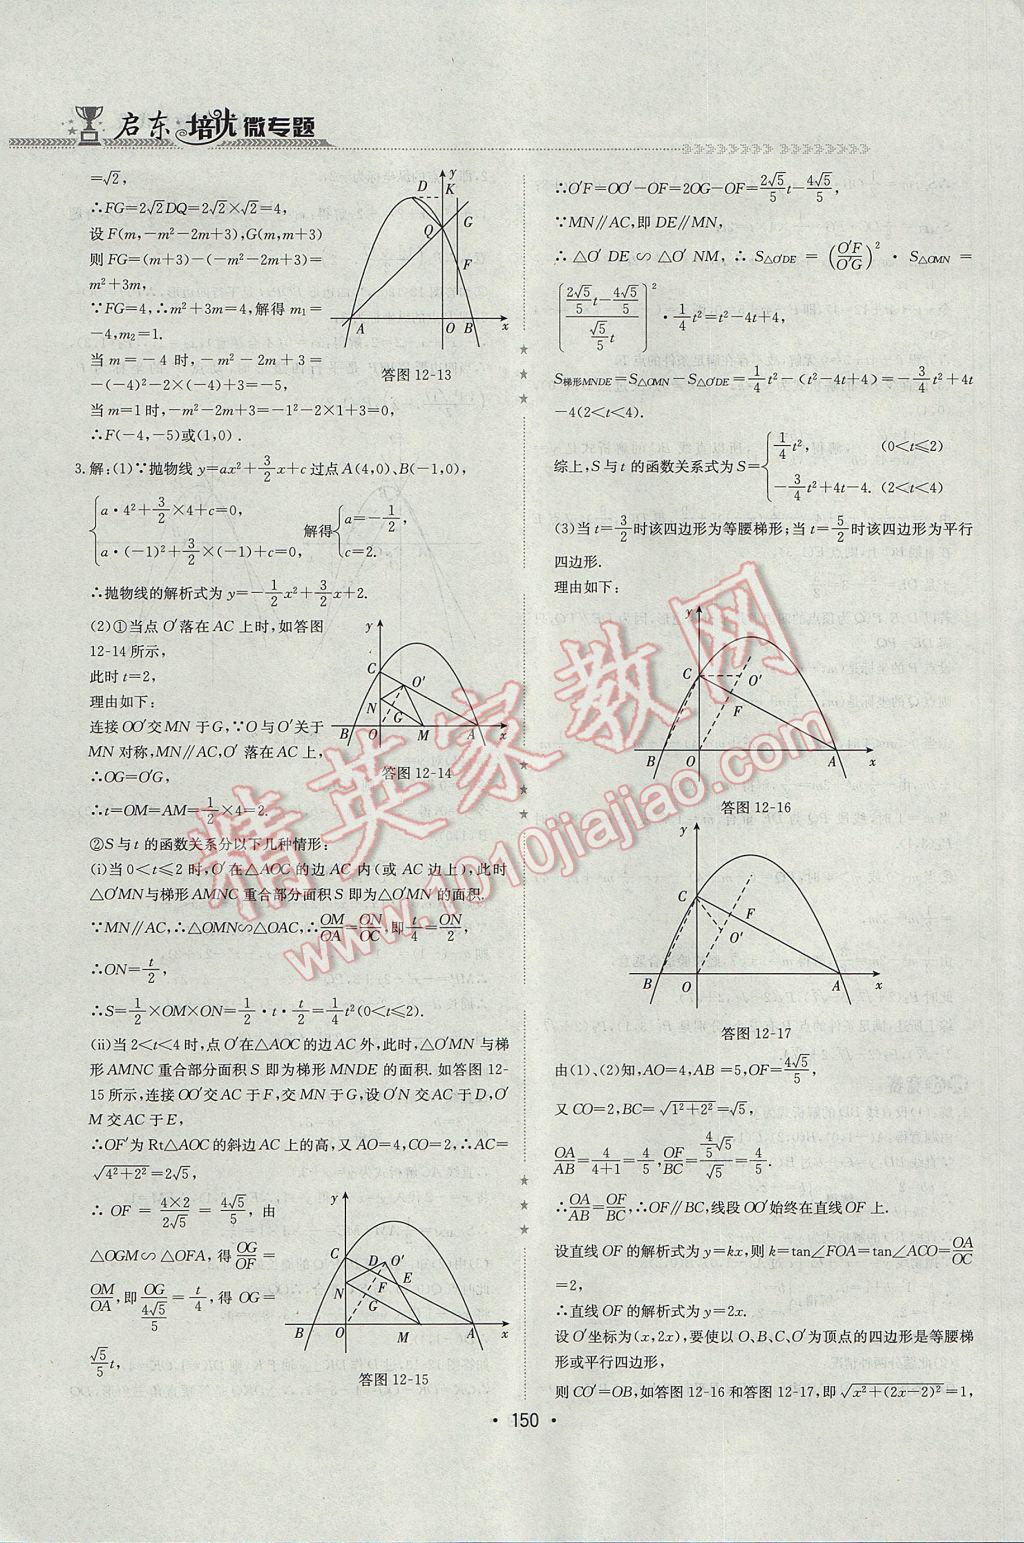 启东培优微专题
=√2,
∴FG=2√2DQ=2√2×√2=4,
设F(m,-m²-2m+3),G(m,m+3)
则FG=(m+3)-(-m²-2m+3)=
m²+3m,
∵FG=4,∴m²+3m=4,解得m₁=
-4,m₂=1.
当m=-4时,-m²-2m+3=
-(-4)²-2×(-4)+3=-5,
当m=1时,-m²-2m+3=-1²-2×1+3=0,
∴F(-4,-5)或(1,0).
D K y G Q F A O B x
答图12-13
3.解:(1)∵抛物线y=ax²+3/2x+c过点A(4,0)、B(-1,0),
{a·4²+3/2×4+c=0, a·(-1)²+3/2×(-1)+c=0, 解得{a=-1/2, c=2.
∴抛物线的解析式为y=-1/2x²+3/2x+2.
(2)①当点O′落在AC上时,如答图
12-14所示,
此时t=2,
理由如下:
连接OO′交MN于G,∵O与O′关于
MN对称,MN∥AC,O′落在AC上,
∴OG=O′G,
∴t=OM=AM=1/2×4=2.
y C O′ N G B O M A x
答图12-14
②S与t的函数关系分以下几种情形:
(i)当0<t≤2时,O′在△AOC的边AC内(或AC边上),此时
△O′MN与梯形AMNC重合部分面积S即为△O′MN的面积.
∵MN∥AC,∴△OMN∽△OAC,∴OM/OA=ON/OC,即t/4=ON/2,
∴ON=t/2,
∴S=1/2×OM×ON=1/2·t·t/2=1/4t²(0<t≤2).
(ii)当2<t<4时,点O′在△AOC的边AC外,此时,△O′MN与梯
形AMNC重合部分面积S即为梯形MNDE的面积.如答图12-
15所示,连接OO′交AC于F,交MN于G,设O′N交AC于D,O′
M交AC于E,
∴OF′为Rt△AOC的斜边AC上的高,又AO=4,CO=2,∴AC=
√(4²+2²)=2√5,
∴OF=4×2/2√5=4√5/5,由
△OGM∽△OFA,得OG/OF=
OM/OA,即OG/(4√5/5)=t/4,得OG=
√5/5t,
y C D O′ F E N G B O M A x
答图12-15
∴O′F=OO′-OF=2OG-OF=2√5/5t-4√5/5,
∵MN∥AC,即DE∥MN,
∴△O′DE∽△O′NM,∴S△O′DE=(O′F/O′G)²·S△OMN=
[(2√5/5t-4√5/5)/(√5/5t)]²·1/4t²=t²-4t+4,
S梯形MNDE=S△OMN-S△O′DE=1/4t²-(t²-4t+4)=-3/4t²+4t
-4(2<t<4).
综上,S与t的函数关系式为S={1/4t², (0<t≤2) -3/4t²+4t-4. (2<t<4)
(3)当t=3/2时该四边形为等腰梯形;当t=5/2时该四边形为平行
四边形.
理由如下:
y C O′ F B O A x
答图12-16
y C F O′ B O A x
答图12-17
由(1)、(2)知,AO=4,AB=5,OF=4√5/5,
又CO=2,BC=√(1²+2²)=√5,
OA/AB=4/(4+1)=4/5,OF/BC=(4/5√5)/√5=4/5.
∴OA/AB=OF/BC,∴OF∥BC,线段OO′始终在直线OF上.
设直线OF的解析式为y=kx,则k=tan∠FOA=tan∠ACO=OA/OC
=2,
∴直线OF的解析式为y=2x.
设O′坐标为(x,2x),要使以O、B、C、O′为顶点的四边形是等腰梯
形或平行四边形,
则CO′=OB,如答图12-16和答图12-17,即√(x²+(2x-2)²)=1,
·150·
精英家教网
www.1010jiajiao.com